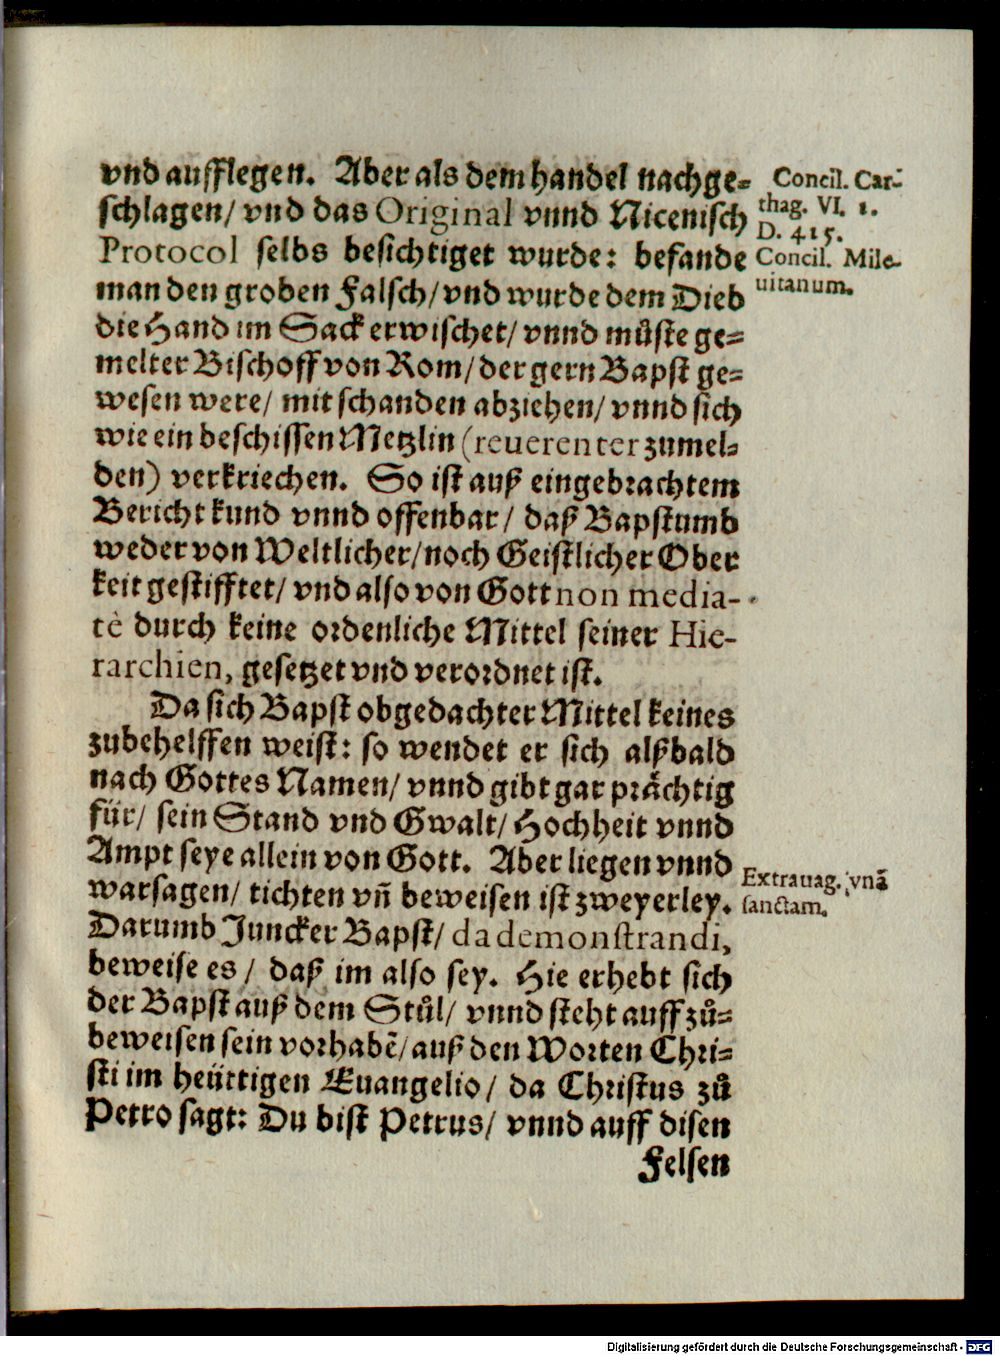 vnd aufflegen. Aber als dem handel nachge⸗
schlagen/ vnd das Original vnnd Nicenisch
Protocol selbs besichtiget wurde: befande
man den groben Falsch/ vnd wurde dem Dieb
die Hand im Sack erwischet/ vnnd můste ge⸗
melter Bischoff von Rom/ der gern Bapst ge⸗
wesen were/ mit schanden abziehen/ vnnd sich
wie ein beschissen Metzlin (reuerenter zumel⸗
den) verkriechen. So ist auß eingebrachtem
Bericht kund vnnd offenbar/ daß Bapstumb
weder von Weltlicher/ noch Geistlicher Ober
keit gestifftet/ vnd also von Gott non media-
tè durch keine ordenliche Mittel seiner Hie-
rarchien, gesetzet vnd verordnet ist.
Concil. Car-
thag. VI. 1.
D. 415.
Concil. Mile-
uitanum.
Da sich Bapst obgedachter Mittel keines
zubehelffen weist: so wendet er sich alßbald
nach Gottes Namen/ vnnd gibt gar prächtig
für/ sein Stand vnd Gwalt/ Hochheit vnnd
Ampt seye allein von Gott. Aber liegen vnnd
warsagen/ tichten vñ beweisen ist zweyerley.
Darumb Juncker Bapst/ da demonstrandi,
beweise es/ daß im also sey. Hie erhebt sich
der Bapst auß dem Stůl/ vnnd steht auff zů⸗
beweisen sein vorhabẽ/ auß den Worten Chri⸗
sti im heüttigen Euangelio/ da Christus zů
Petro sagt: Du bist Petrus/ vnnd auff disen
Felsen
Extrauag. vnã
sanctam.
Digitalisierung gefördert durch die Deutsche Forschungsgemeinschaft - DFG